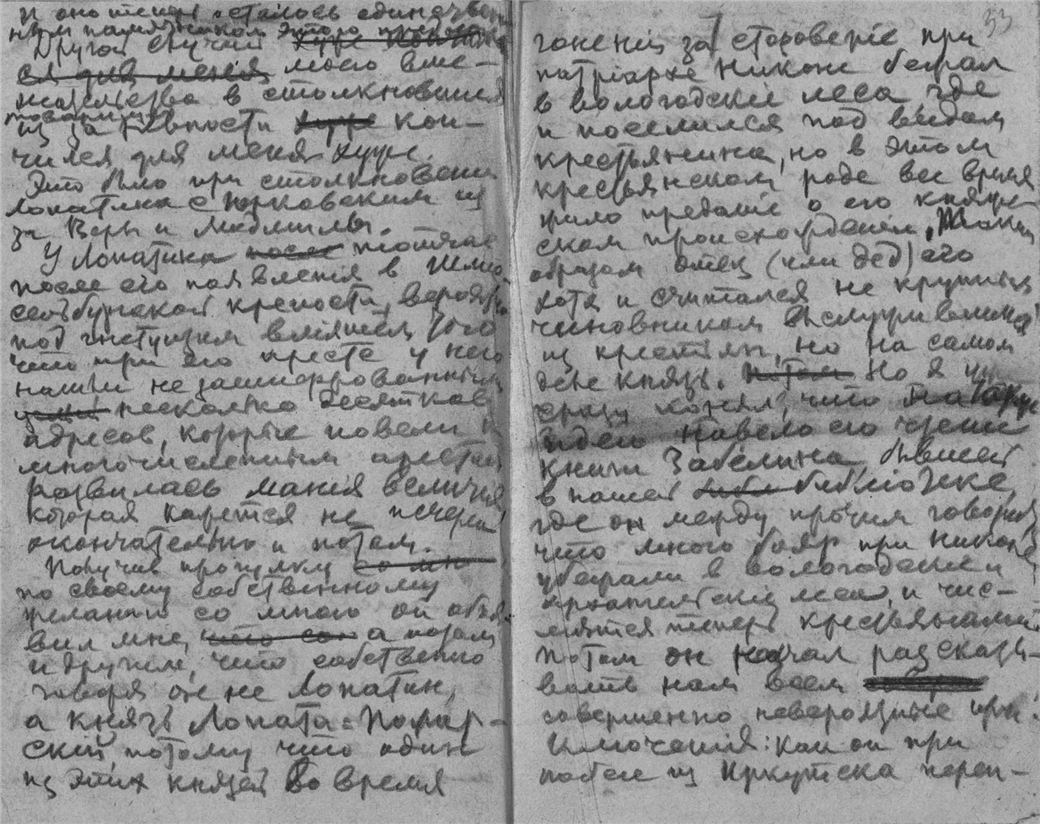 и оно теперь осталось единствен
ным памятником этого
Другой случай хуже
для меня моего вме-
шательства в столкновения
товарищей
из за ревности хуже кон-
чился для меня хуже.
Это было при столкновении
Лопатина с Юрковским из
за Веры и Людмилы.
У Лопатина после тотчас
после его появления в Шлис-
сельбургской крепости, вероятно
под гнетущим влиянием того
что при его аресте у него
нашли не зашифрованными
несколько десятков
адресов, которые повели к
многочисленным арестам
развилась мания величия
которая кажется не исчезла
окончательно и потом.
Получив прогулку со мно
по своему собственному
желанию со мною он объя-
вил мне, что со а потом
и другим, что собственно
говоря он не Лопатин,
а князь Лопата-Пожар-
ский, потому что один
из этих князей во время
53
гонений за староверие при
патриархе Никоне бежал
в вологодские леса, где
и поселился под видом
крестьянина, но в этом
крестьянском роде все время
жило предание о его княже-
ском происхождении. Таким
образом отец (или дед) его
хотя и считался не крупным
чиновником выслужившимся
из крестьян, но на самом
деле князь. Потом Но я
сразу понял, что на такую
идею навело его чтение
книги Забелина бывшей
в нашей библиотеке,
где он между прочим говорил
что много бояр при Никоне
убежали в вологодские и
архангельские леса, и чис-
лятся теперь крестьянами.
Потом он начал рассказы-
вать нам всем
совершенно невероятные при-
ключения: как он при
побеге из Иркутска переп-